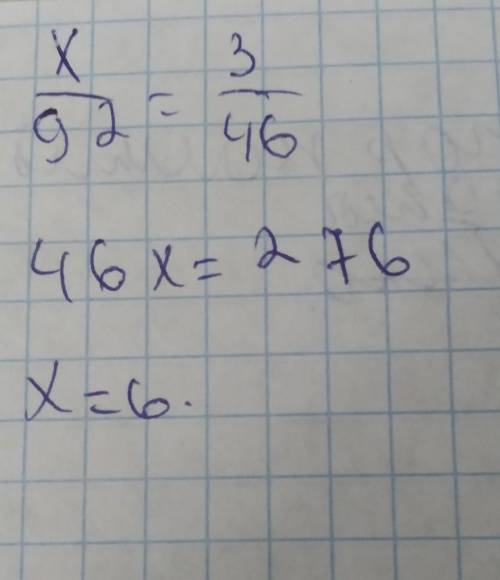 x/92 = 3/46
46x = 276
x = 6.